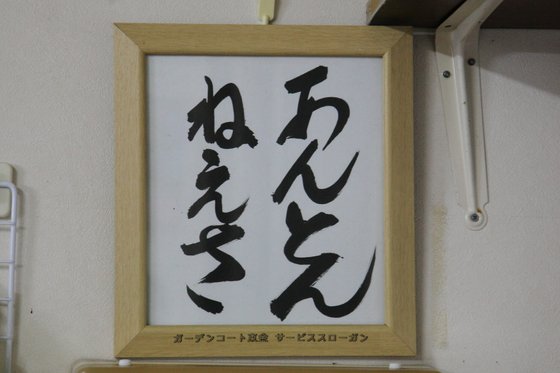 あんとん
ねえさ
ガーデンコート東金 サービススローガン